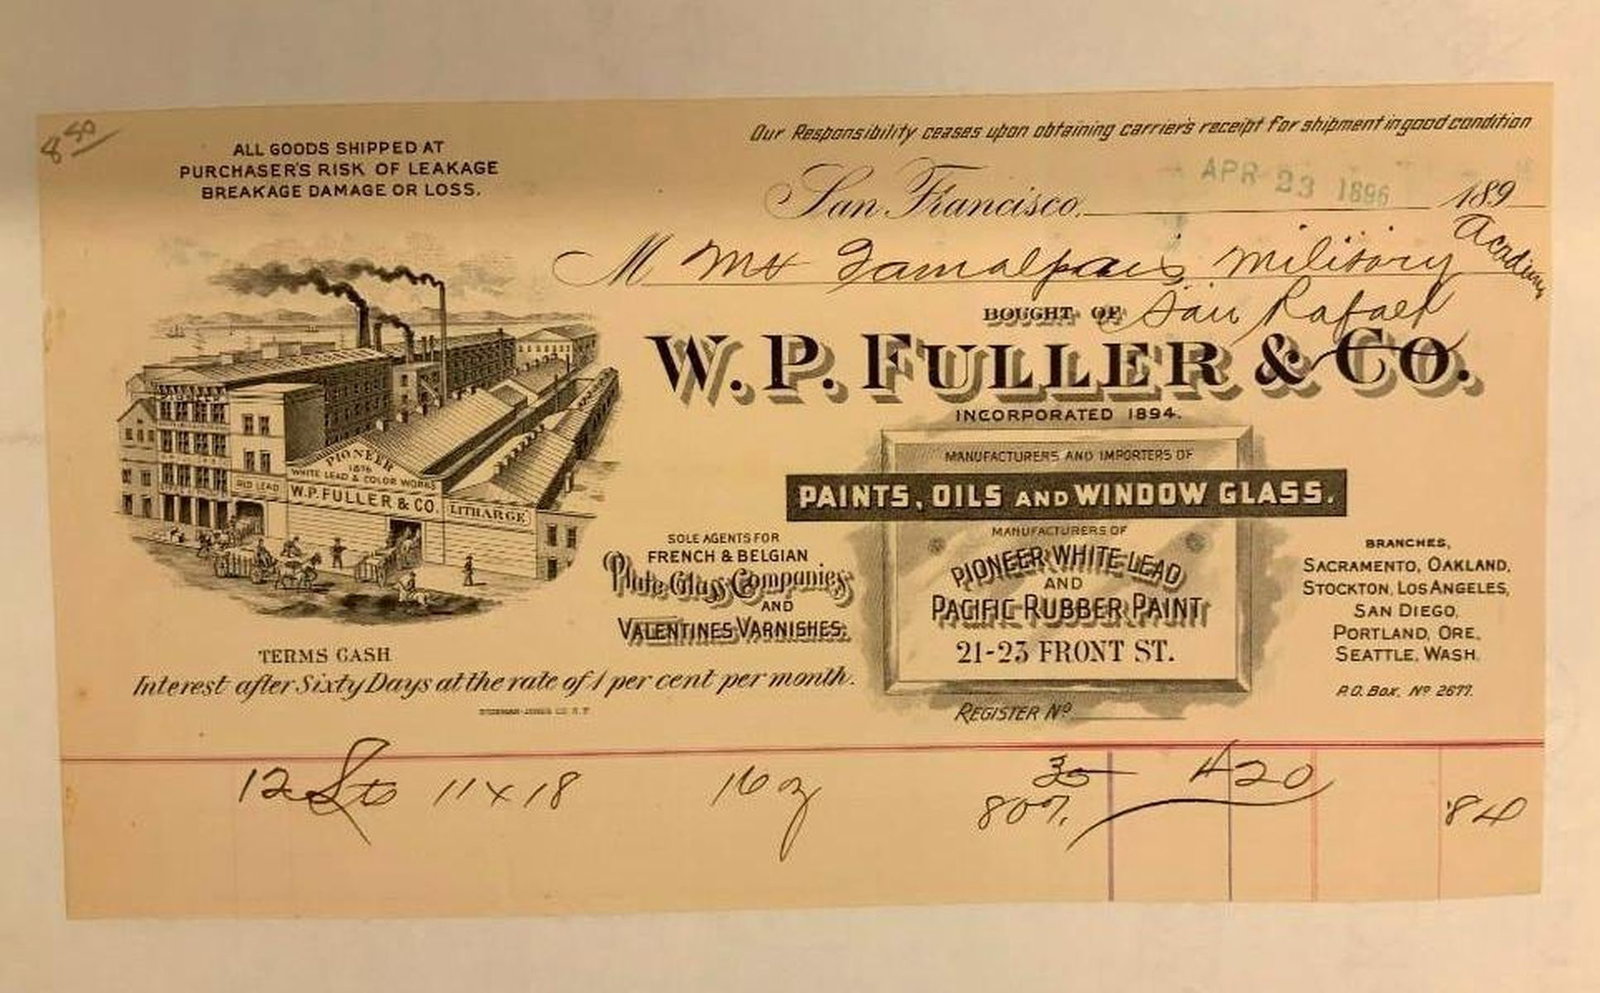 8 50
ALL GOODS SHIPPED AT
PURCHASER'S RISK OF LEAKAGE
BREAKAGE DAMAGE OR LOSS.
Our Responsibility ceases upon obtaining carrier's receipt for shipment in good condition
San Francisco, APR 23 1896 189
M Mt Tamalpais Military Academy
San Rafael
BOUGHT OF
W. P. FULLER & CO.
INCORPORATED 1894.
MANUFACTURERS AND IMPORTERS OF
PAINTS, OILS AND WINDOW GLASS.
MANUFACTURERS OF
PIONEER WHITE LEAD
AND
PACIFIC RUBBER PAINT
21-23 FRONT ST.
REGISTER Nº
PIONEER
1876
WHITE LEAD & COLOR WORKS
OLD LEAD
W.P. FULLER & CO.
LITHARGE
SOLE AGENTS FOR
FRENCH & BELGIAN
Plate Glass Companies
AND
VALENTINES VARNISHES.
BRANCHES,
SACRAMENTO, OAKLAND,
STOCKTON, LOS ANGELES,
SAN DIEGO,
PORTLAND, ORE,
SEATTLE, WASH.
P.O. Box, Nº 2677.
TERMS CASH
Interest after Sixty Days at the rate of 1 per cent per month.
12 Lts 11 x 18 16 oz 35 4 20
80% 84